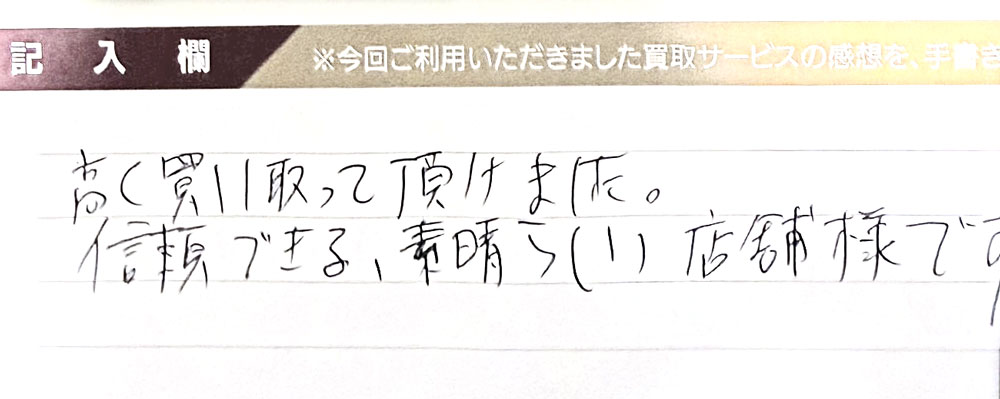 記入欄 ※今回ご利用いただきました買取サービスの感想を、手書き
高く買い取って頂けました。
信頼できる、素晴らしい店舗様です